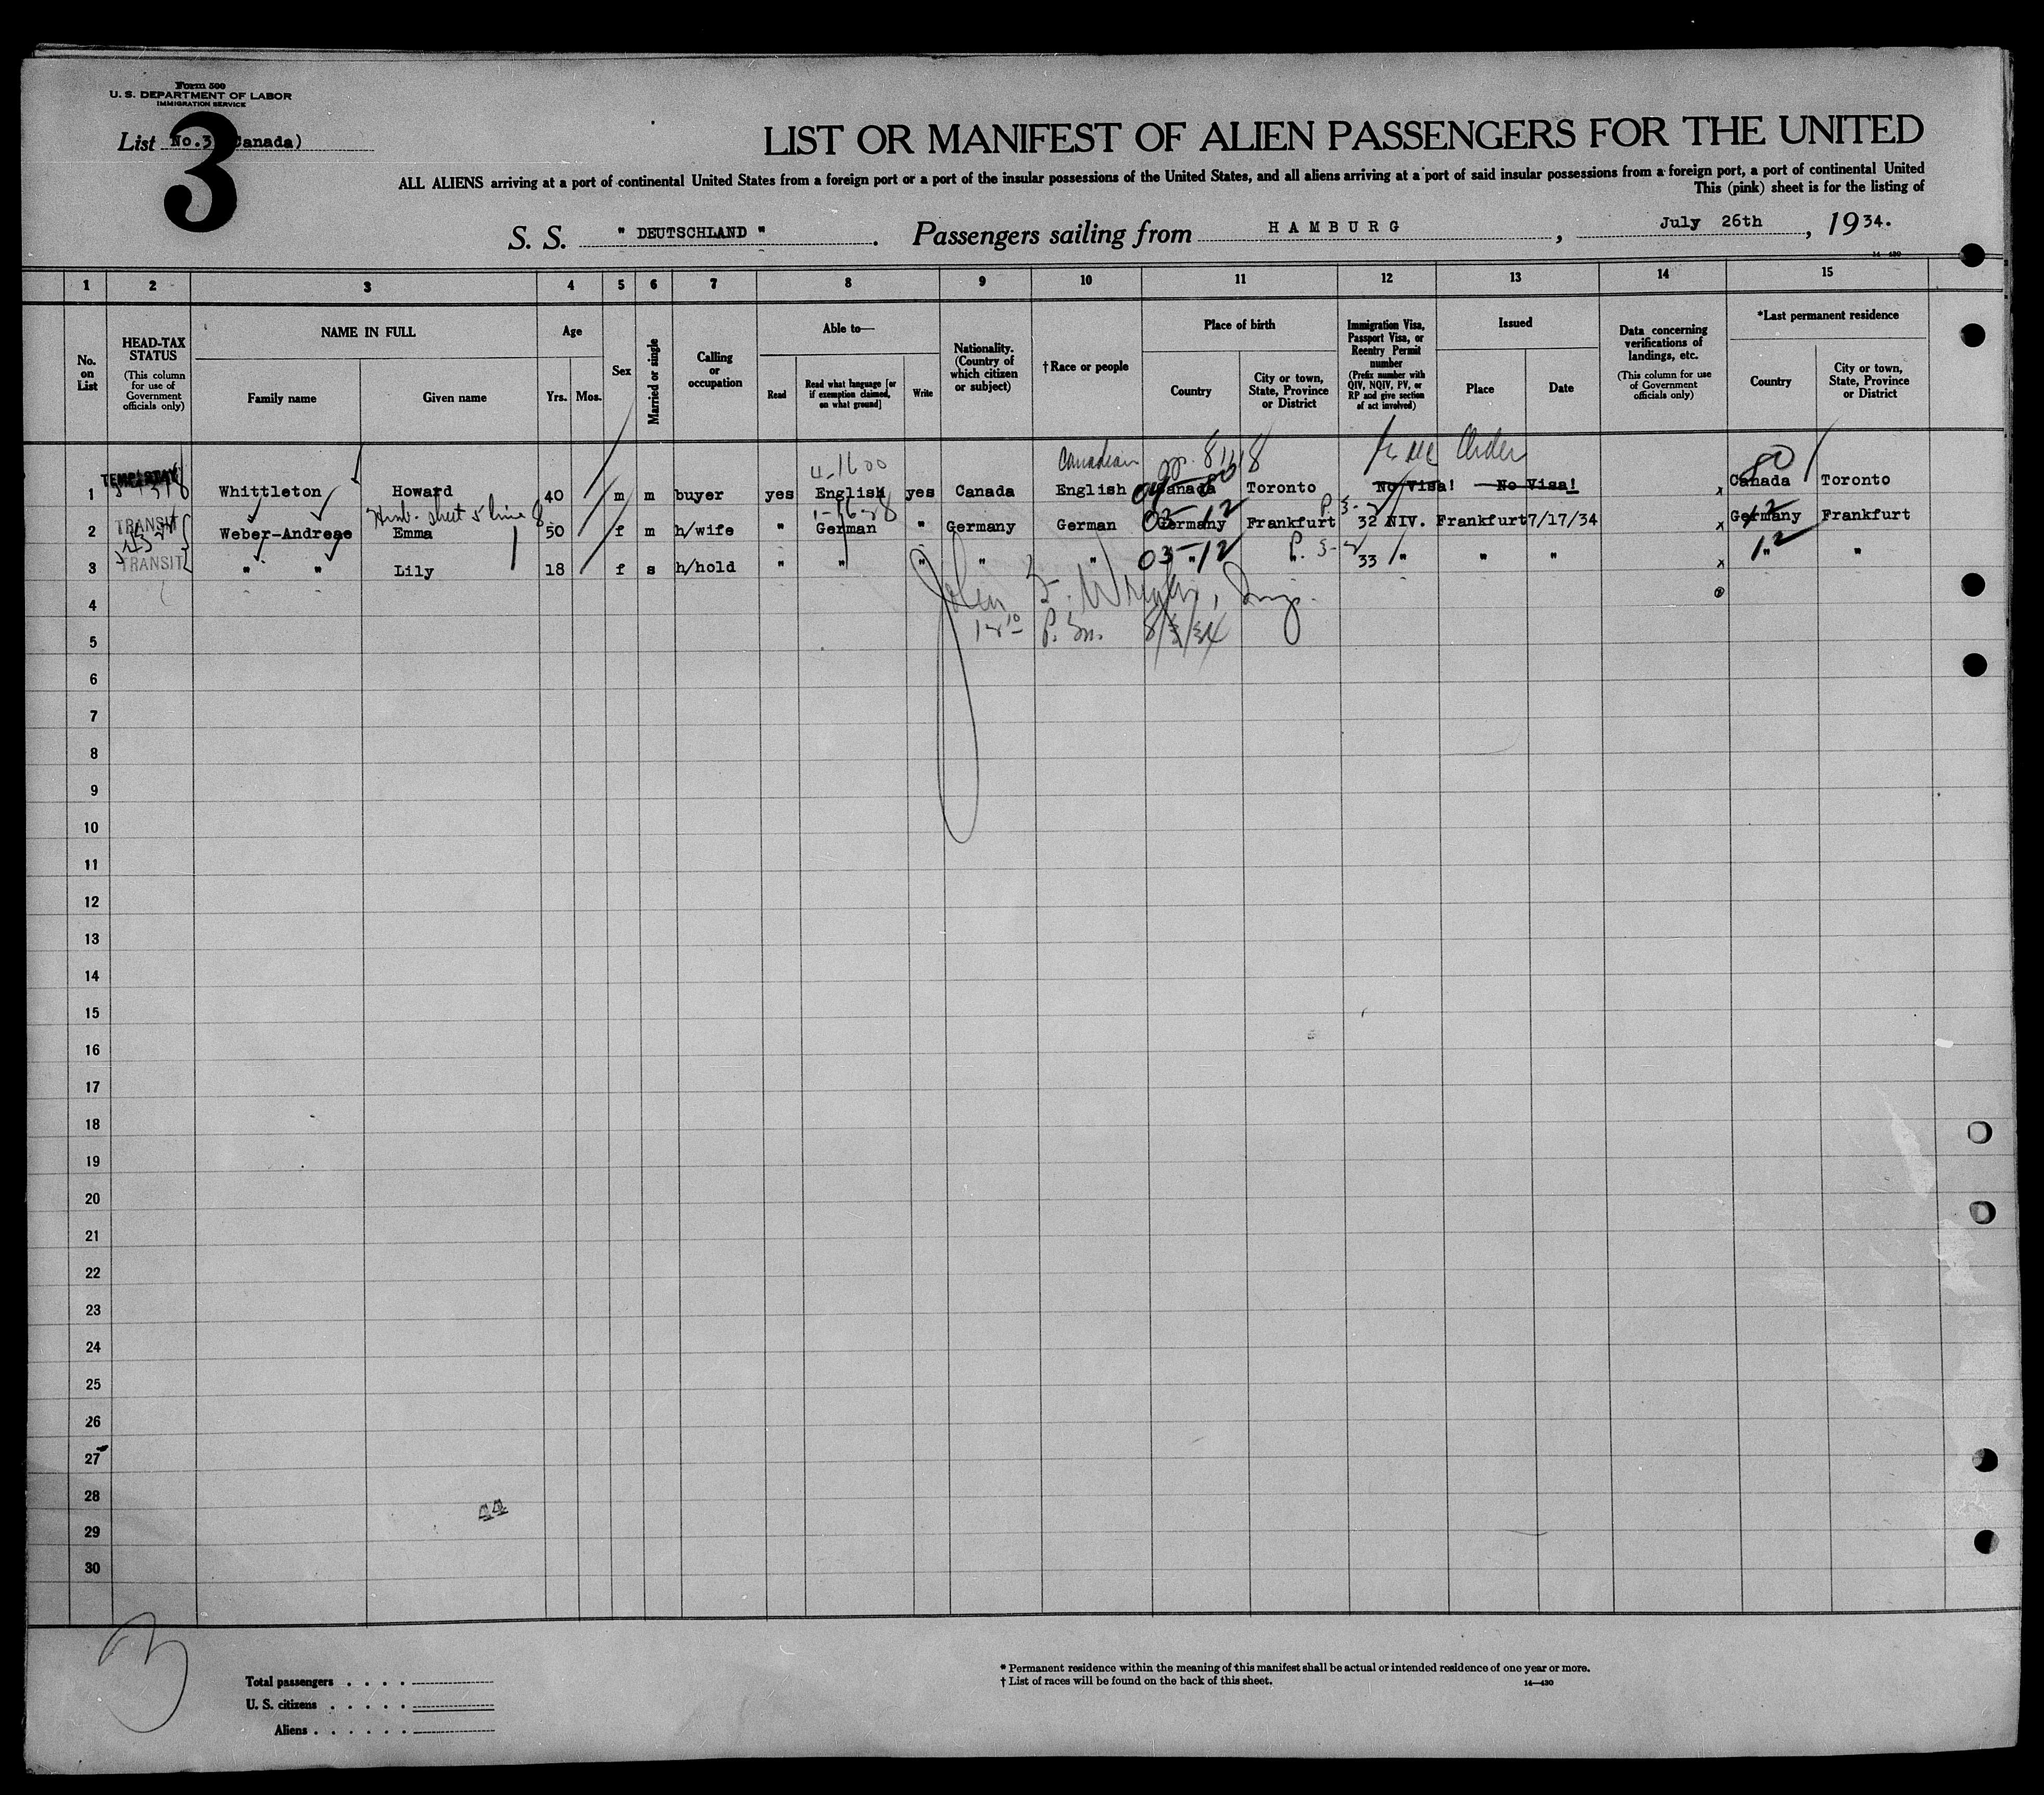 Form 500
U. S. DEPARTMENT OF LABOR
IMMIGRATION SERVICE
List No.3 Canada)
3
LIST OR MANIFEST OF ALIEN PASSENGERS FOR THE UNITED
ALL ALIENS arriving at a port of continental United States from a foreign port or a port of the insular possessions of the United States, and all aliens arriving at a port of said insular possessions from a foreign port, a port of continental United
This (pink) sheet is for the listing of
S. S. " DEUTSCHLAND " . Passengers sailing from HAMBURG , July 26th , 1934.
14—430
1 2 3 4 5 6 7 8 9 10 11 12 13 14 15
No. on List
HEAD-TAX STATUS (This column for use of Government officials only)
NAME IN FULL
Family name Given name
Age
Yrs. Mos.
Sex
Married or single
Calling or occupation
Able to—
Read Read what language [or if exemption claimed, on what ground] Write
Nationality. (Country of which citizen or subject)
† Race or people
Place of birth
Country City or town, State, Province or District
Immigration Visa, Passport Visa, or Reentry Permit number (Prefix number with QIV, NQIV, PV, or RP and give section of act involved)
Issued
Place Date
Data concerning verifications of landings, etc. (This column for use of Government officials only)
*Last permanent residence
Country City or town, State, Province or District
4-1600 Canadian Order 80
1 Whittleton Howard 40 m m buyer yes English yes Canada English Canada Toronto No Visa! No Visa! x Canada Toronto
sheet 5 line 8 P. 3-2
2 TRANSIT Weber-Andreae Emma 50 f m h/wife " German " Germany German Germany Frankfurt 32 NIV. Frankfurt 7/17/34 x Germany Frankfurt
03-12 P. 3-2 12
3 TRANSIT " " Lily 18 f s h/hold " " " " " " " 33 " " " x " "
4 John
5 P.m. 8/3/34
6
7
8
9
10
11
12
13
14
15
16
17
18
19
20
21
22
23
24
25
26
27
28
44
29
30
3
Total passengers . . . .
U. S. citizens . . . . .
Aliens . . . . . .
* Permanent residence within the meaning of this manifest shall be actual or intended residence of one year or more.
† List of races will be found on the back of this sheet. 14—430